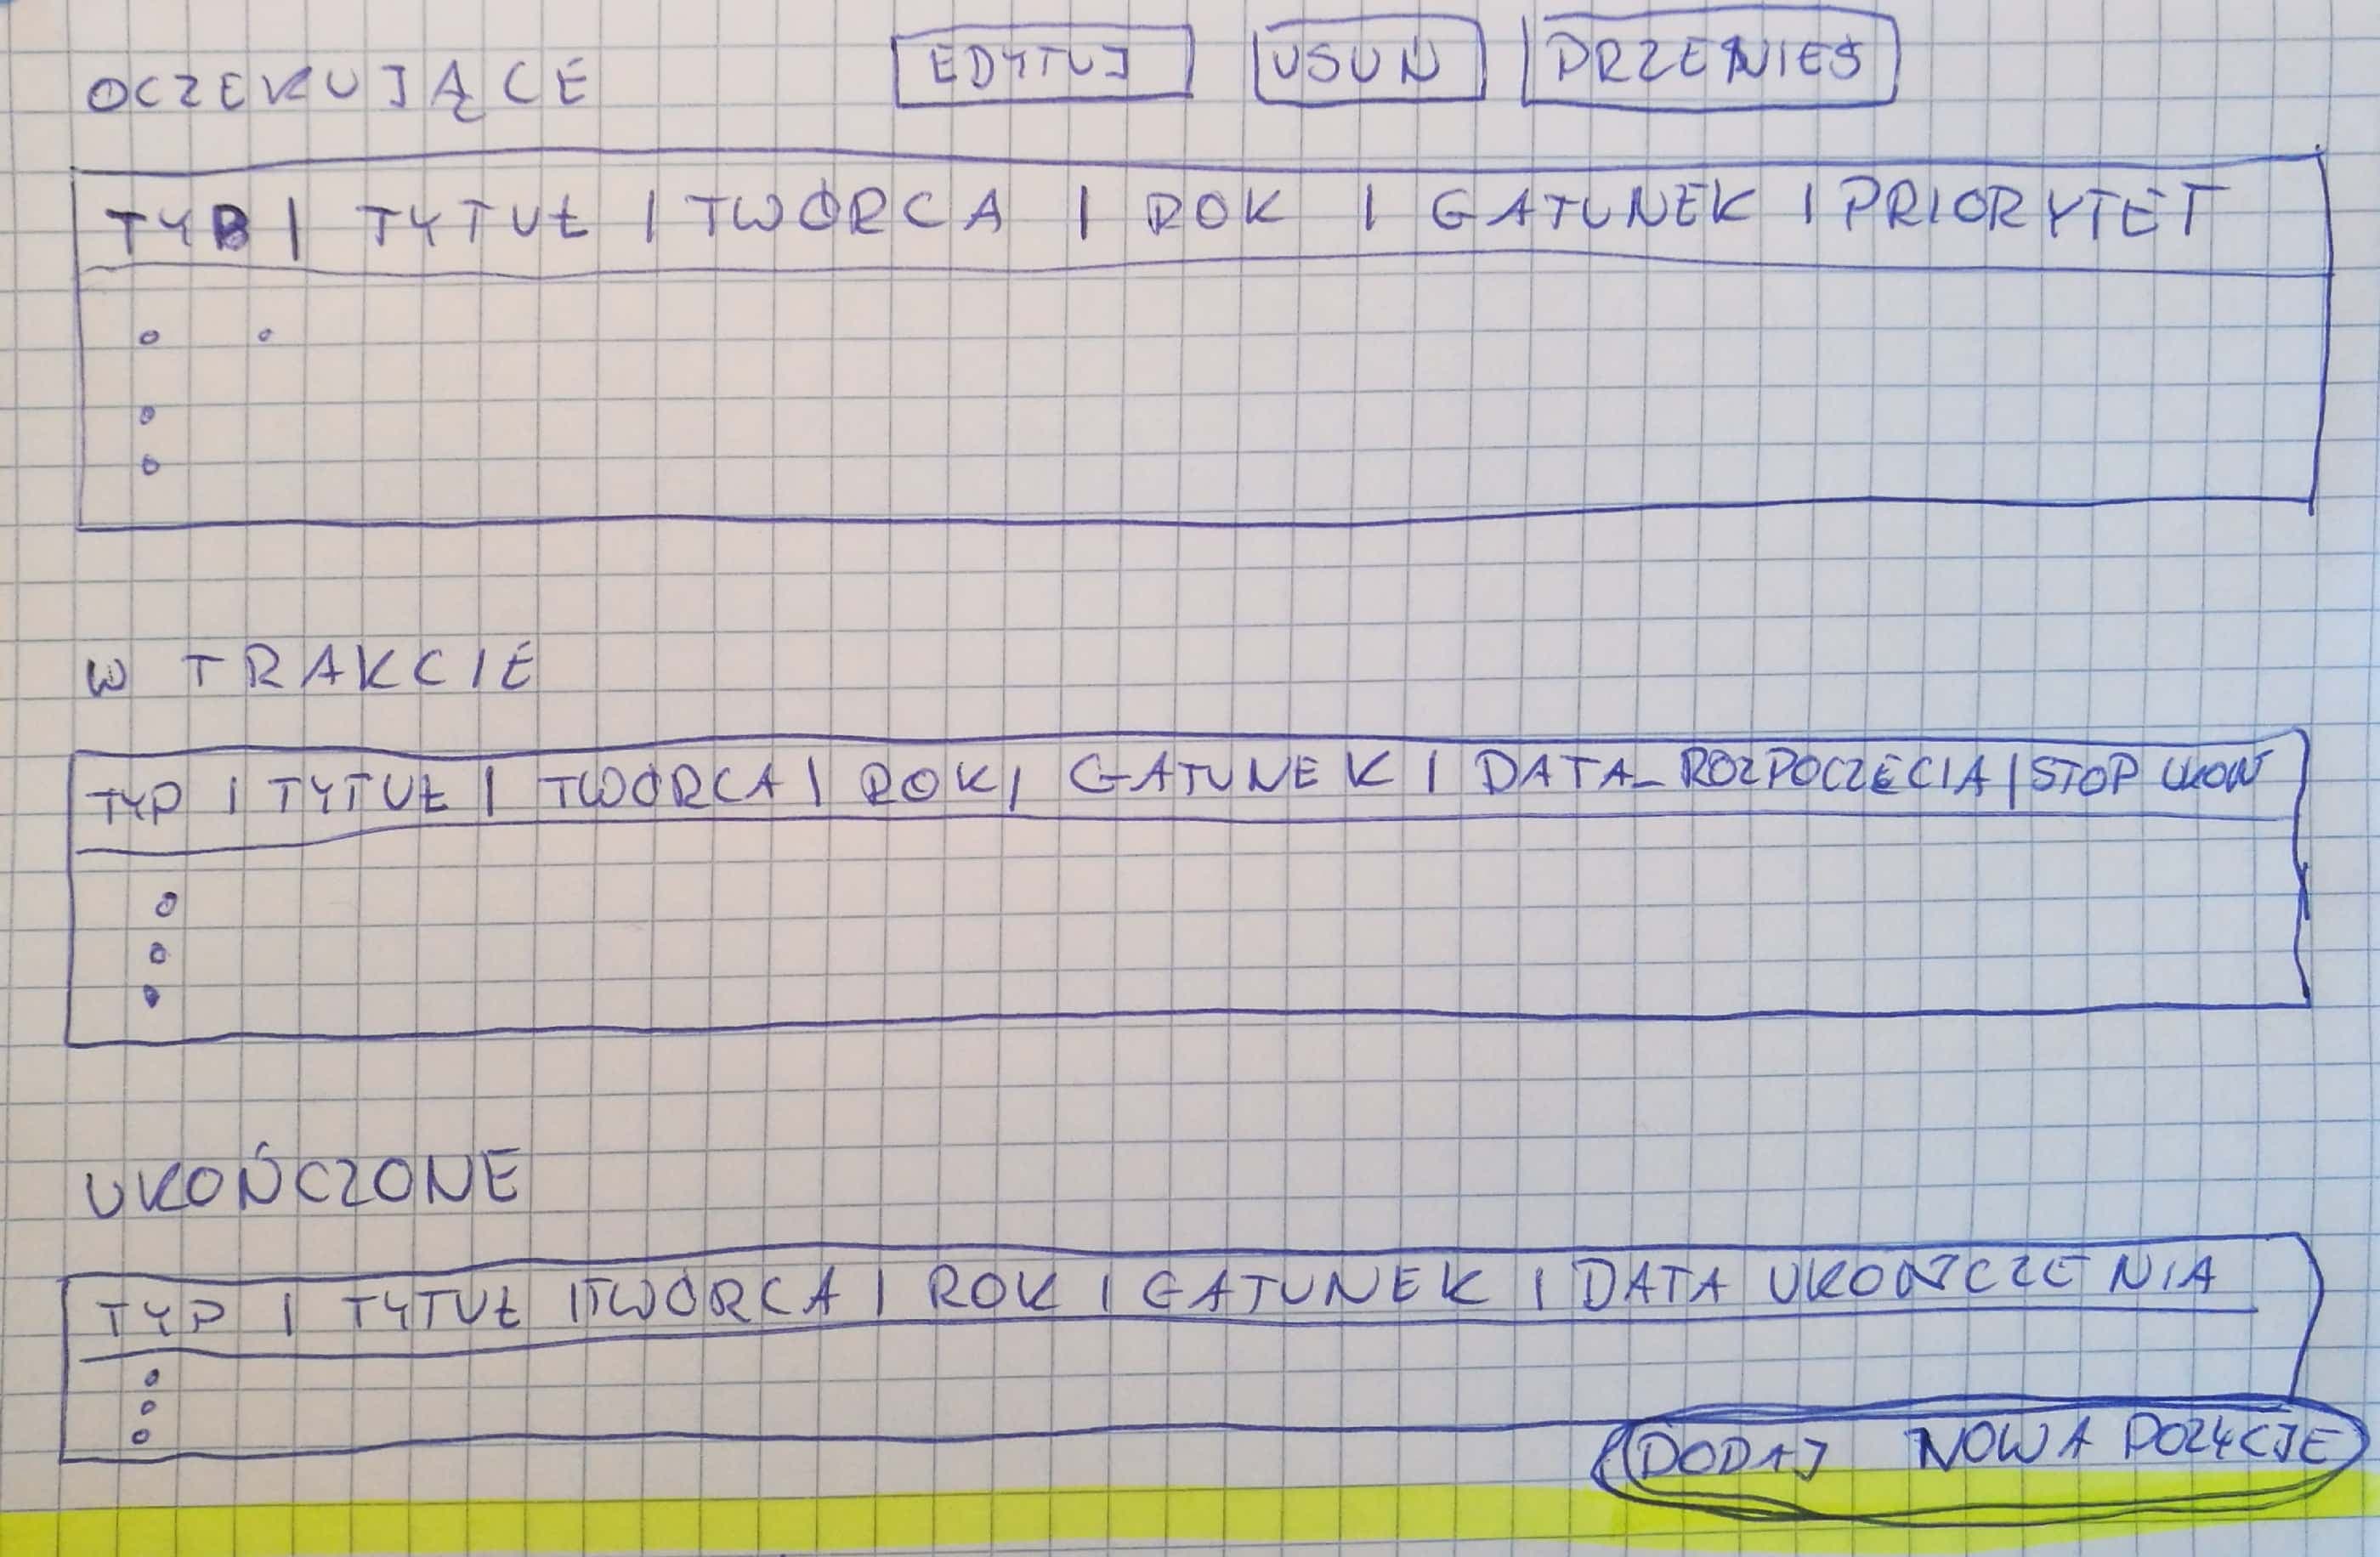 OCZEKUJĄCE EDYTUJ USUŃ PRZENIEŚ
TYP | TYTUŁ | TWÓRCA | ROK | GATUNEK | PRIORYTET
W TRAKCIE
TYP | TYTUŁ | TWÓRCA | ROK | GATUNEK | DATA_ROZPOCZĘCIA | STOP UKOŃ
UKOŃCZONE
TYP | TYTUŁ | TWÓRCA | ROK | GATUNEK | DATA UKOŃCZENIA
DODAJ NOWA POZYCJE